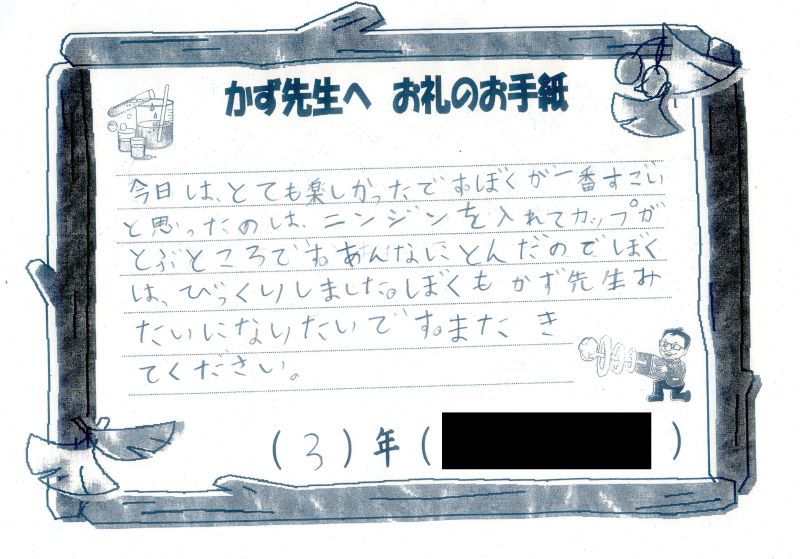 かず先生へ お礼のお手紙
今日は、とても楽しかったです。ぼくが一番すごい
と思ったのは、ニンジンを入れてカップが
とぶところです。あんなにとんだのでぼく
は、びっくりしました。ぼくもかず先生み
たいになりたいです。またき
てください。
(3)年( )